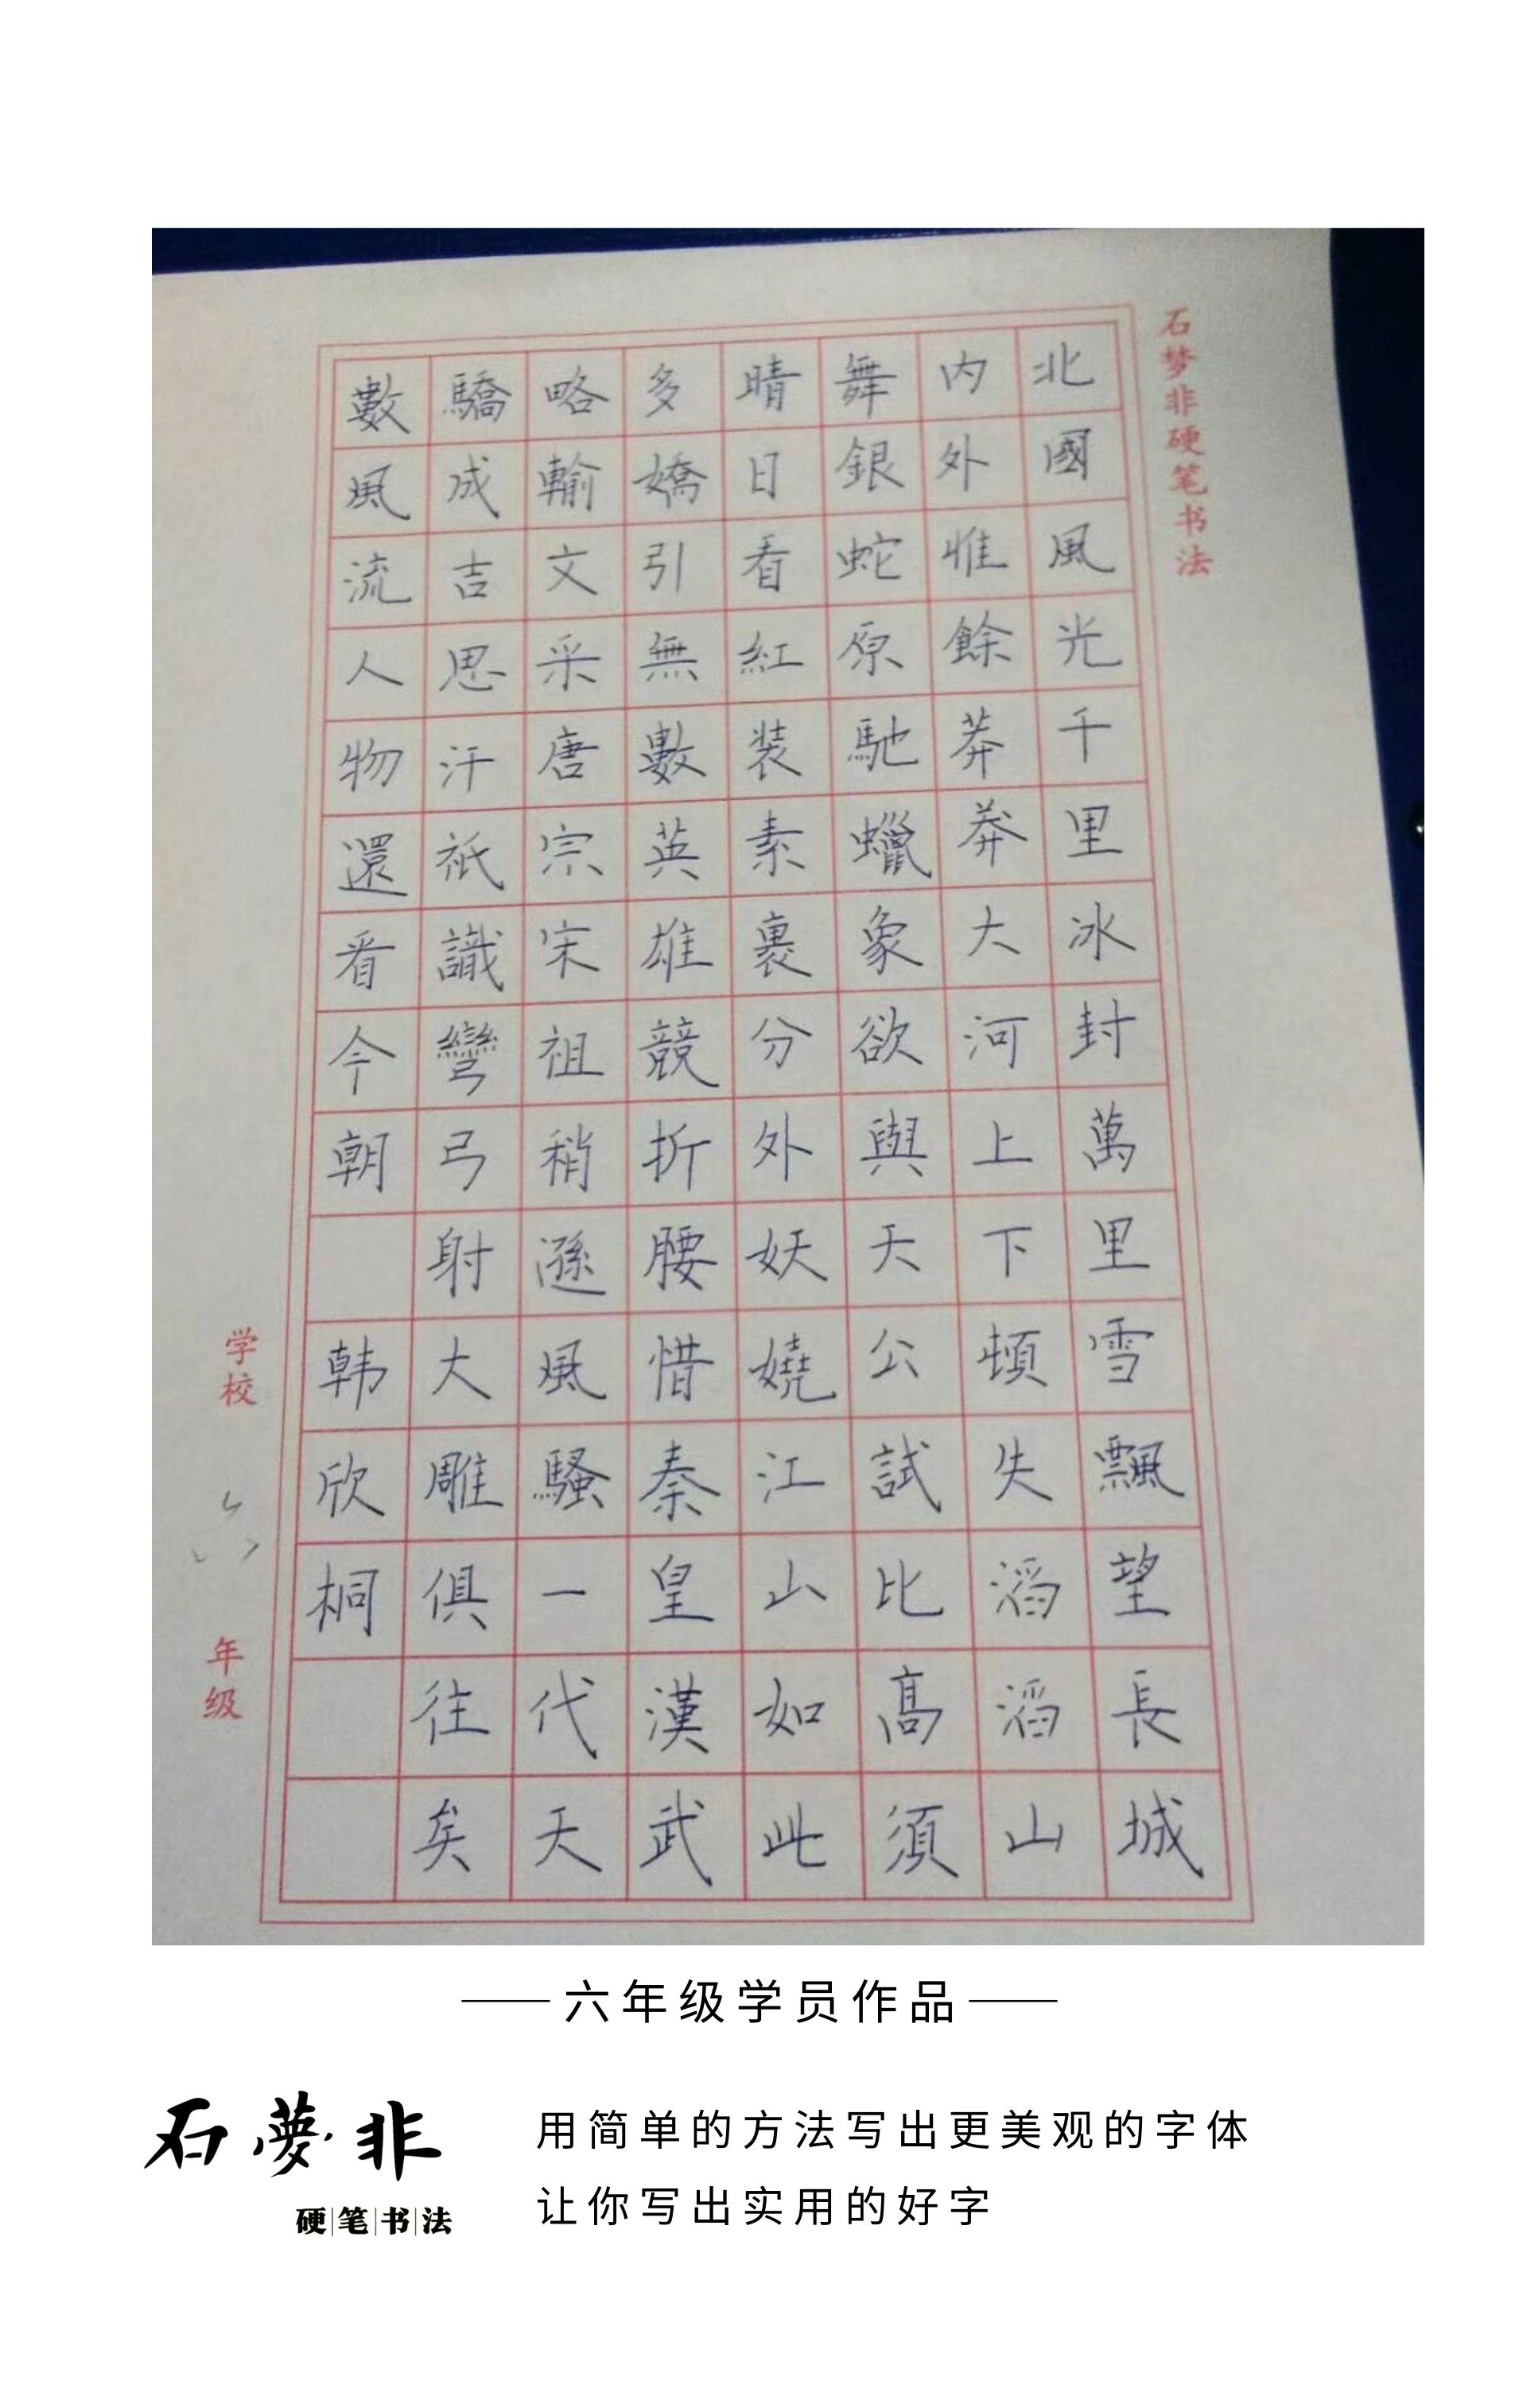 石梦非硬笔书法
北國風光千里冰封萬里雪飄望長城
内外惟餘莽莽大河上下頓失滔滔山
舞銀蛇原馳蠟象欲與天公試比高須
晴日看紅装素裹分外妖嬈江山如此
多嬌引無數英雄競折腰惜秦皇漢武
略輸文采唐宗宋祖稍遜風騷一代天
驕成吉思汗祇識彎弓射大雕俱往矣
數風流人物還看今朝 韩欣桐
学校 六 年级
六年级学员作品
石夢非
硬笔书法
用简单的方法写出更美观的字体
让你写出实用的好字